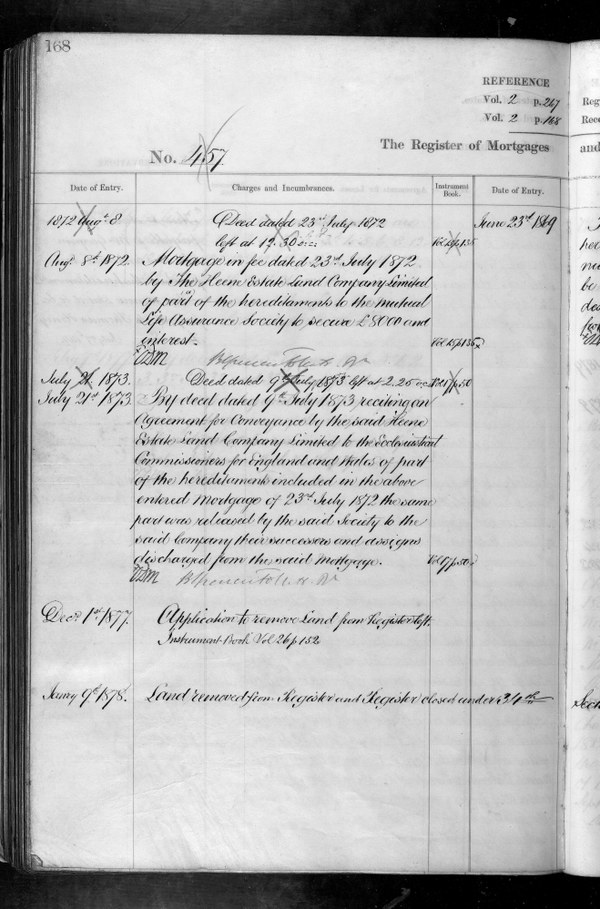 168
REFERENCE
Vol. 2 p. 267
Vol. 2 p. 168
The Register of Mortgages
and
No. 457
Date of Entry.
Charges and Incumbrances.
Instrument Book.
Date of Entry.
1872 Augt. 8
Deed dated 23rd July 1872
June 23rd 1869
left at 12.30
Augt. 8th 1872.
Mortgage in fee dated 23rd July 1872
by The Heene Estate Land Company Limited
of part of the hereditaments to the Mutual
Life Assurance Society to secure £8000 and
interest.
July 21. 1873.
Deed dated 9th July 1873 left at 2.25
Vol 17 p. 50
July 21st 1873
By deed dated 9th July 1873 reciting an
Agreement for Conveyance by the said Heene
Estate Land Company Limited to the Ecclesiastical
Commissioners for England and Wales of part
of the hereditaments included in the above
entered Mortgage of 23rd July 1872 the same
part was released by the said Society to the
said Company their successors and assigns
discharged from the said Mortgage.
Vol 17 p. 50
Decr. 1st 1877.
Application to remove Land from Register left.
Instrument Book Vol 26 p 152
Janry 9th 1878.
Land removed from Register and Register closed under 34th